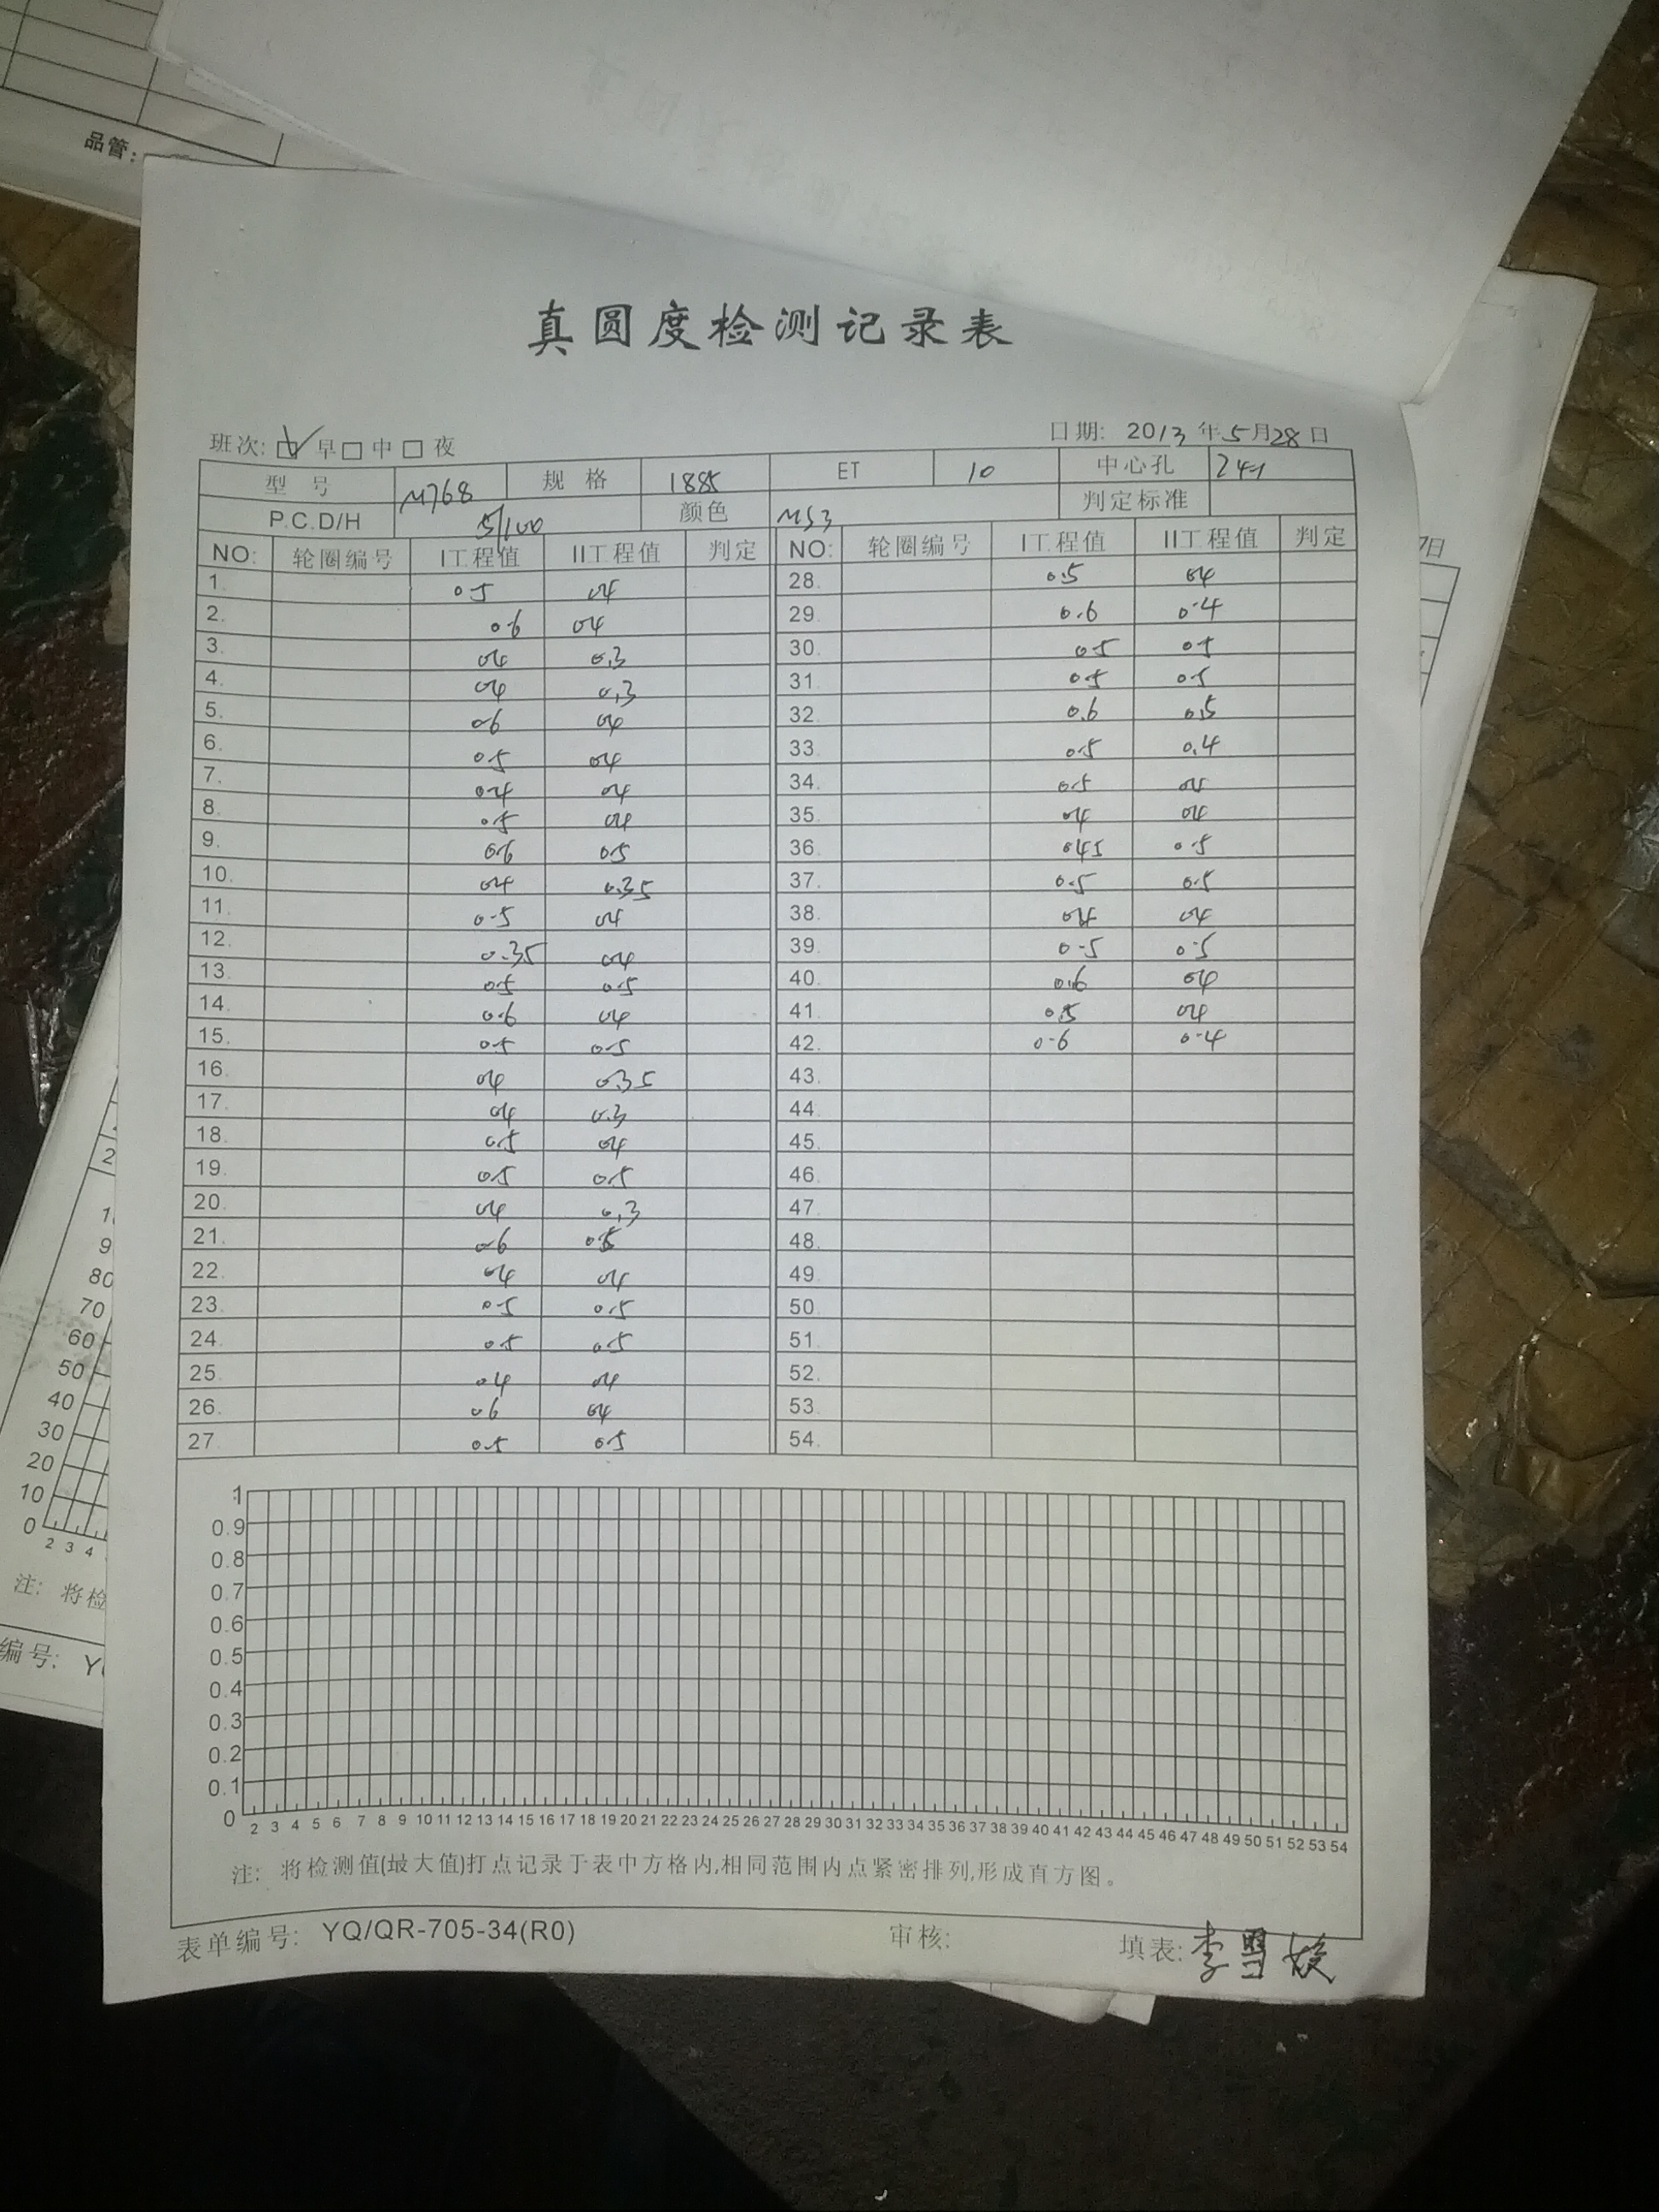 品管:
真圆度检测记录表
班次: ☑早☐中☐夜 日期: 2013年5月28日
型号 M768 规格 1885 ET 10 中心孔
P.C.D/H 5/100 颜色 MS3 判定标准
NO: 轮圈编号 I工程值 II工程值 判定 NO: 轮圈编号 I工程值 II工程值 判定
1. 0.5 04 28. 0.5 04
2. 06 04 29. 0.6 0.4
3. 04 0.3 30. 0.5 05
4. 04 0.3 31. 0.5 0.5
5. 06 04 32. 0.6 0.5
6. 0.5 04 33. 0.5 0.4
7. 0.4 04 34. 0.5 04
8. 0.5 04 35. 04 04
9. 06 0.5 36. 045 0.5
10. 04 0.35 37. 0.5 0.5
11. 0.5 04 38. 04 04
12. 0.35 04 39. 0.5 0.5
13. 0.5 0.5 40. 0.6 04
14. 0.6 04 41. 0.5 04
15. 0.5 0.5 42. 0.6 0.4
16. 04 0.35 43.
17. 04 0.3 44.
18. 0.5 04 45.
19. 0.5 0.5 46.
20. 04 0.3 47.
21. 06 0.5 48.
22. 04 04 49.
23. 0.5 0.5 50.
24. 0.5 0.5 51.
25. 04 04 52.
26. 06 04 53.
27. 0.5 0.5 54.
1
0.9
0.8
0.7
0.6
0.5
0.4
0.3
0.2
0.1
0
2 3 4 5 6 7 8 9 10 11 12 13 14 15 16 17 18 19 20 21 22 23 24 25 26 27 28 29 30 31 32 33 34 35 36 37 38 39 40 41 42 43 44 45 46 47 48 49 50 51 52 53 54
注: 将检测值(最大值)打点记录于表中方格内,相同范围内点紧密排列,形成直方图。
表单编号: YQ/QR-705-34(R0) 审核: 填表:
7日
80
70
60
50
40
30
20
10
0
2 3 4
注: 将检
编号: Y